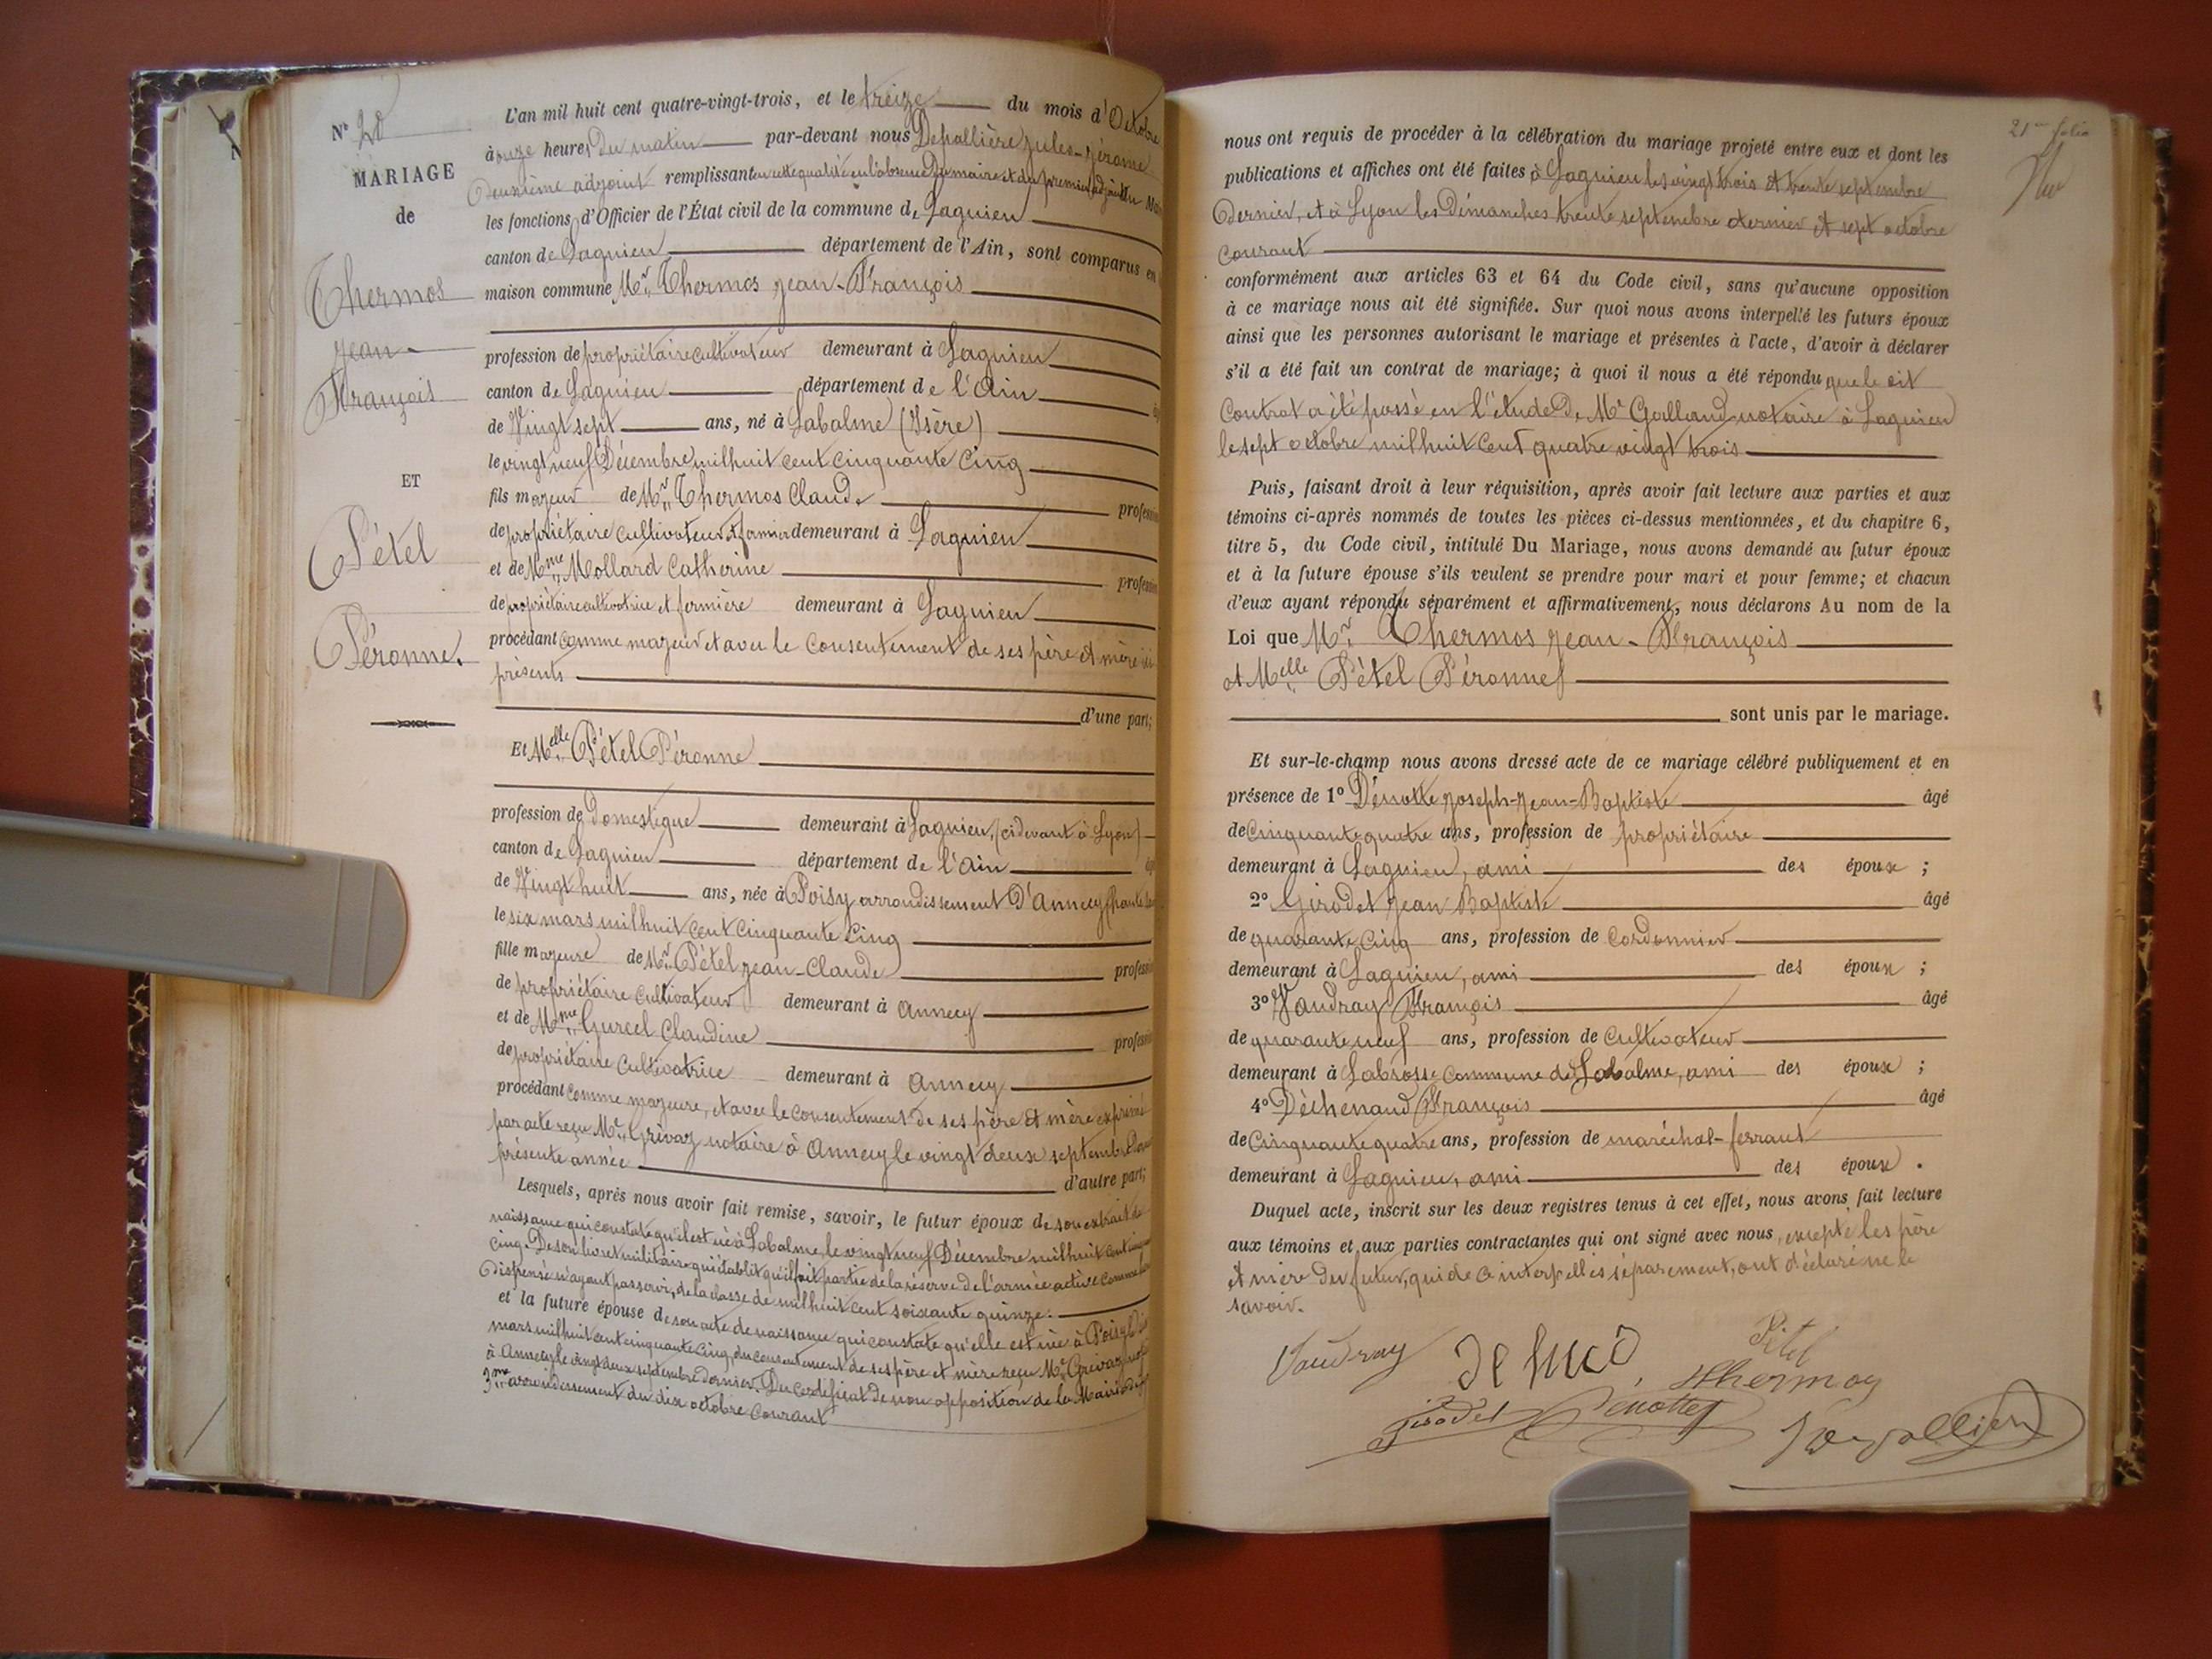 N° 20
MARIAGE
de
Thermos
Jean-
François
ET
Pétel
Péronne.
L'an mil huit cent quatre-vingt-trois, et le treize du mois d'Octobre
à onze heures du matin par-devant nous Depallière Jules-Jérome
Deuxième adjoint remplissant en cette qualité en l'absence du maire et du premier adjoint
les fonctions d'Officier de l'État civil de la commune de Lagnieu
canton de Lagnieu département de l'Ain, sont comparus en
maison commune Mr Thermos Jean-François
profession de propriétaire cultivateur demeurant à Lagnieu
canton de Lagnieu département de l'Ain
de Vingt sept ans, né à Labalme (Isère)
le vingt neuf Décembre mil huit cent cinquante cinq
fils majeur de Mr Thermos Claude profession
de propriétaire cultivateur et fermier demeurant à Lagnieu
et de Mme Mollard Catherine profession
de propriétaire cultivatrice et fermière demeurant à Lagnieu
procédant comme majeur et avec le consentement de ses père et mère ici
présents
d'une part;
Et Melle Pétel Péronne
profession de Domestique demeurant à Lagnieu, (ci devant à Lyon)
canton de Lagnieu département de l'Ain
de Vingt huit ans, née à Poisy arrondissement D'Annecy
le six mars mil huit cent cinquante cinq
fille majeure de Mr Pétel Jean-Claude profession
de propriétaire cultivateur demeurant à Annecy
et de Mme Gurcel Claudine profession
de propriétaire cultivatrice demeurant à Annecy
procédant comme majeure, et avec le consentement de ses père et mère exprimé
par acte reçu Me Grivaz notaire à Annecy le vingt deux septembre
présente année d'autre part;
Lesquels, après nous avoir fait remise, savoir, le futur époux de son extrait de
naissance qui constate qu'il est né à Labalme, le vingt neuf Décembre mil huit cent cinquante
cinq. De son livret militaire qui établit qu'il fait partie de la réserve de l'armée active comme
Dispensé n'ayant pas servi, de la classe de mil huit cent soixante quinze.
et la future épouse de son acte de naissance qui constate qu'elle est née à Poisy
mars mil huit cent cinquante cinq, du consentement de ses père et mère reçu Me Grivaz
à Annecy le vingt deux septembre dernier. Du certificat de non opposition de la Mairie du
3me arrondissement du dix octobre courant
21me folio
nous ont requis de procéder à la célébration du mariage projeté entre eux et dont les
publications et affiches ont été faites à Lagnieu les vingt trois et trente septembre
Dernier, et à Lyon les Dimanches trente septembre dernier et sept octobre
courant
conformément aux articles 63 et 64 du Code civil, sans qu'aucune opposition
à ce mariage nous ait été signifiée. Sur quoi nous avons interpellé les futurs époux
ainsi que les personnes autorisant le mariage et présentes à l'acte, d'avoir à déclarer
s'il a été fait un contrat de mariage; à quoi il nous a été répondu que le dit
Contrat a été passé en l'étude de Me Galland notaire à Lagnieu
le sept octobre mil huit cent quatre vingt trois
Puis, faisant droit à leur réquisition, après avoir fait lecture aux parties et aux
témoins ci-après nommés de toutes les pièces ci-dessus mentionnées, et du chapitre 6,
titre 5, du Code civil, intitulé Du Mariage, nous avons demandé au futur époux
et à la future épouse s'ils veulent se prendre pour mari et pour femme; et chacun
d'eux ayant répondu séparément et affirmativement, nous déclarons Au nom de la
Loi que Mr Thermos Jean-François
et Melle Pétel Péronne
sont unis par le mariage.
Et sur-le-champ nous avons dressé acte de ce mariage célébré publiquement et en
présence de 1° Dénotte Joseph-Jean-Baptiste âgé
de Cinquante quatre ans, profession de propriétaire
demeurant à Lagnieu, ami des époux ;
2° Girodet Jean Baptiste âgé
de quarante cinq ans, profession de Cordonnier
demeurant à Lagnieu, ami des époux ;
3° Vaudray François âgé
de quarante neuf ans, profession de Cultivateur
demeurant à Labrosse commune de Labalme, ami des époux ;
4° Déchenaud François âgé
de Cinquante quatre ans, profession de maréchal-ferrant
demeurant à Lagnieu, ami des époux .
Duquel acte, inscrit sur les deux registres tenus à cet effet, nous avons fait lecture
aux témoins et aux parties contractantes qui ont signé avec nous, excepté les père
et mère du futur, qui de ce interpellés séparement, ont déclaré ne le
savoir.
Vaudray Pétel
Thermoz
Girodet Dénotte